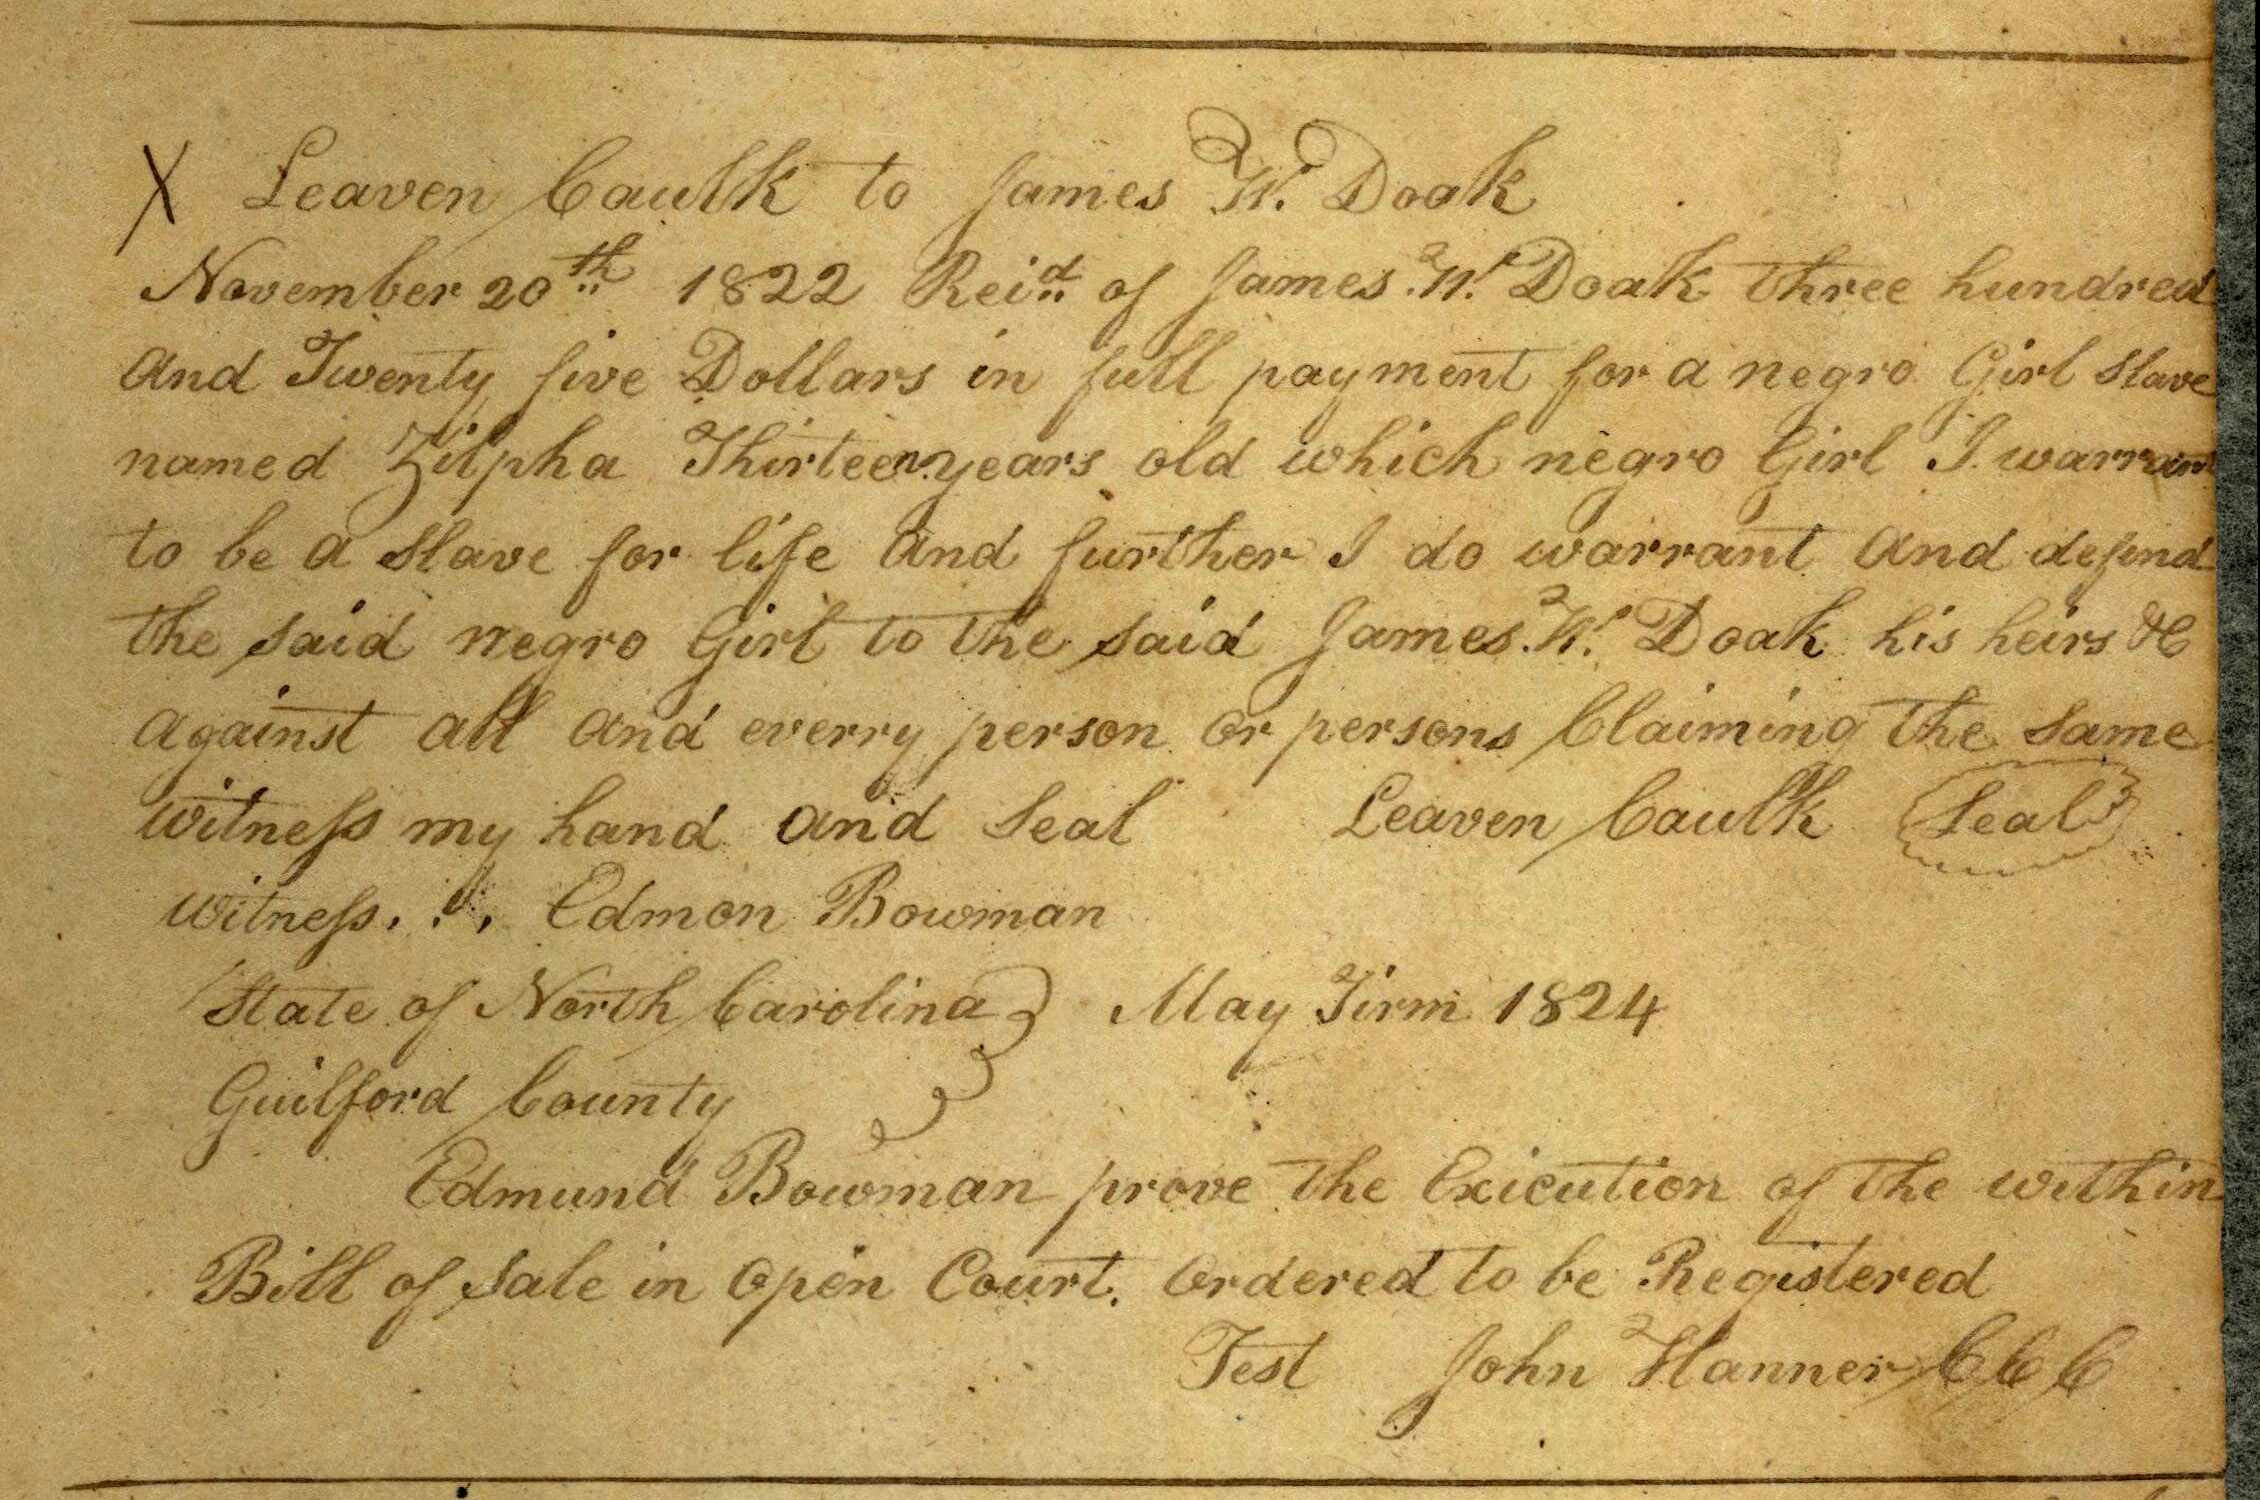 X Leaven Caulk to James W. Doak
November 20th 1822 Reid of James W. Doak three hundred
and Twenty five Dollars in full payment for a negro Girl slave
named Zilpha Thirteen years old which negro Girl I warrant
to be a slave for life and further I do warrant and defend
the said negro Girl to the said James W. Doak his heirs &C
against all and everry person or persons Claiming the same
witness my hand and Seal Leaven Caulk Seal
witness . . . Edmon Bowman
State of North Carolina May Tirm 1824
Guilford County
Edmund Bowman prove the Exicution of the within
Bill of sale in open Court. ordered to be Registered
Test John Hanner C C C